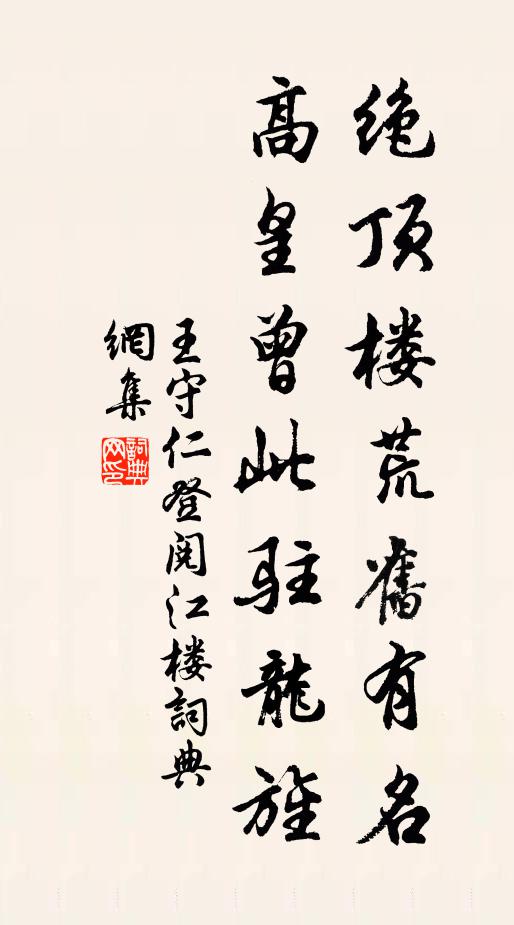 绝顶楼荒舊有名
高皇曾此驻龍旌
王守仁登阅江楼詞典
網集
詞典网印